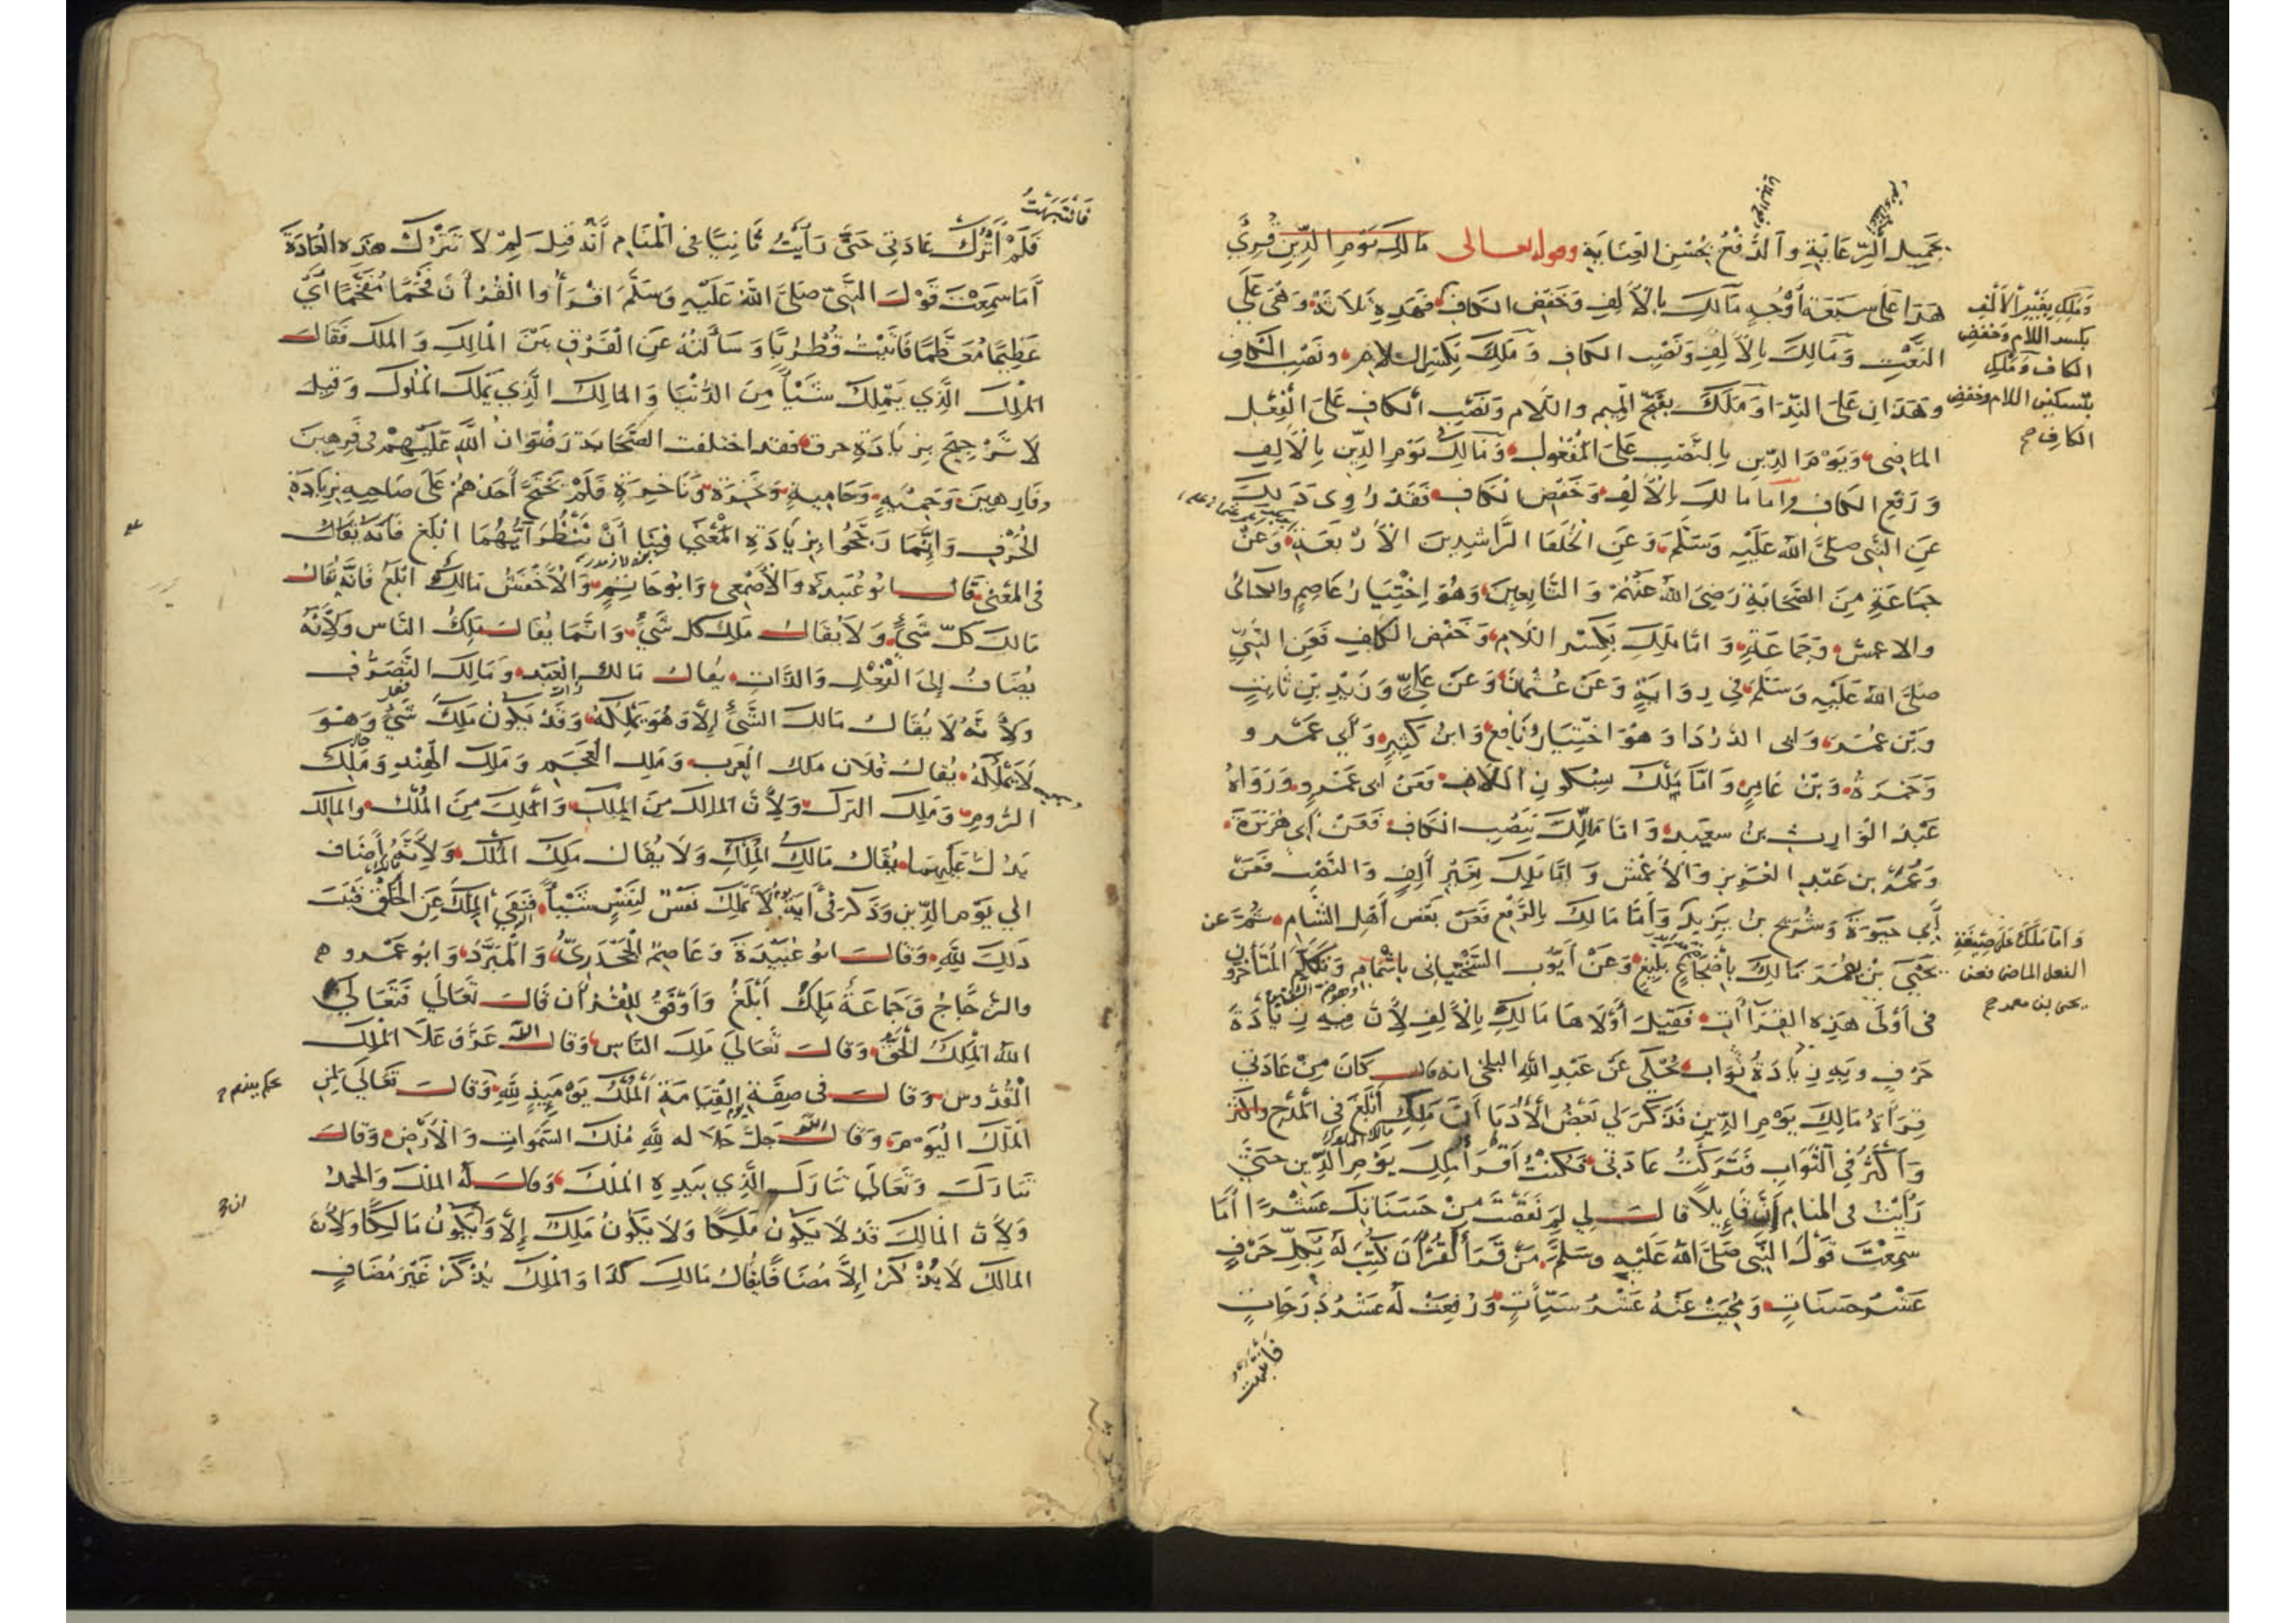 بجميل الرعاية والدفع بحسن العناية وقوله تعالى مَالِكِ يَوْمِ الدِّينِ قُرِئَ
هذا على سبعة أوجه مالك بالألف وخفض الكاف فهذه ثلاثة وهي على
وَمَلِكِ بِغَيْرِ الأَلِفِ
بكسر اللام وخفض
الكاف وَمَلْكِ
بتسكين اللام وخفض
الكاف صح
النعت وَمَالِكَ بالألف ونصب الكاف وَمَلِكَ بكسر اللام ونصب الكاف
وهذان على الندا وَمَلَكَ بفتح الميم واللام ونصب الكاف على الفعل
الماضي ويوم الدين بالنصب على المفعول وَمَالِكُ يوم الدين بالألف
ورفع الكاف واما مالك بالألف وخفض الكاف فقد روي ذلك
عن النبي صلى الله عليه وسلم وعن الخلفا الراشدين الأربعة وعن
جماعة من الصحابة رضي الله عنهم والتابعين وهو اختيار عاصم والكسائي
والاعمش وجماعة واما ملك بكسر اللام وخفض الكاف فعن النبي
صلى الله عليه وسلم في رواية وعن عثمان وعن علي وزيد بن ثابت
وبن عمر وابى الدردا وهو اختيار نافع وابن كثير وأبي عمرو
وحمزة وبن عامر واما ملك بسكون اللام فعن ابى عمرو ورواه
عبد الوارث بن سعيد واما مالك بنصب الكاف فعن ابى هريرة
وعمر بن عبد العزيز والأعمش واما ملك بغير ألف والنصب فعن
أبي حيوة وشريح بن يزيد وأما مالك بالرفع فعن بعض أهل الشام ثمة عن
وأما مَلَكَ على صيغة
الفعل الماضى فعن
يحيى بن معمر صح
يحيى بن يعمر مالك باضجاع بليغ وعن أيوب السختياني باشمام وتكلم المتأخرون
في أولى هذه القراآت فقيل أولاها مالك بالألف لأن فيه زيادة
حرف وبه زيادة ثواب يحكى عن عبد الله البلخى انه قال كان من عادتي
قراءة مالك يوم الدين فذكر لي بعض الأدبا أن ملك أبلغ في المدح والذكر
وأكثر في الثواب فتركت عادتى فكنت أقرأ ملك يوم الدين حتى
رأيت في المنام أن قايلا قال لي لم نقصت من حسناتك عشرا أما
سمعت قول النبي صلى الله عليه وسلم من قرأ القرآن كتب له بكل حرف
عشر حسنات ومحيت عنه عشر سيآت ورفعت له عشر درجات
فانتبهت
فانتبهت
فلم أترك عادتي حتى رأيت ثانيا في المنام أنه قيل لم لا تترك هذه العادة
أما سمعت قول النبي صلى الله عليه وسلم اقرأوا القرآن فخما مفخما أي
عظيما معظما فاتيت قطربا وسألته عن الفرق بين المالك والملك فقال
المالك الذي يملك شيأ من الدنيا والمالك الذي يملك الملوك وقيل
لا ترجيح بزيادة حرف فقد اختلفت الصحابة رضوان الله عليهم في فرهين
وفارهين وحمئة وحامية ونخرة وناخرة فلم يحتج أحدهم على صاحبه بزيادة
الحرف وانما رجحوا بزيادة المعنى فينا أن ننظر أيهما ابلغ فانه يقال
في المعنى قال ابو عبيدة والأصمعى وابو حاتم والأخفش مالك ابلغ فانه يقال
مالك كل شيء ولا يقال ملك كل شيء وانما يقال ملك الناس ولأنه
يضاف إلى الفعل والذات يقال مالك العبد ومالك التصرف
ولأنه لا يقال مالك الشيء إلا وهو يملكه وقد يكون ملك شيء وهو
لا يملكه يقال فلان ملك العرب وملك العجم وملك الهند وملك
الروم وملك الترك ولأن المالك من الملك والملك من الملك والمالك
يدل عليهما يقال مالك الملك ولا يقال ملك الملك ولأنه أضاف
الي يوم الدين وذكر في أية يوم لا تملك نفس لنفس شيأ فنفى الملك عن الخلق فثبت
ذلك لله وقال ابو عبيدة وعاصم الجحدري والمبرد وابو عمرو
والزجاج وجماعة ملك أبلغ وأوفق للقرآن قال تعالى فتعالى
الله الملك الحق وقال تعالى ملك الناس وقال الله عز وعلا الملك
القدوس وقال في صفة القيامة الملك يوميذ لله وقال تعالى لمن
يحكم بينهم
الملك اليوم وقال الله جل جلاله لله ملك السموات والأرض وقال
تبارك وتعالى تبارك الذي بيده الملك وقال له الملك والحمد
ولأن المالك قد لا يكون ملكا ولا يكون ملك إلا ويكون مالكا ولأن
المالك لا يذكر إلا مضافا يقال مالك كذا والملك يذكر غير مضاف